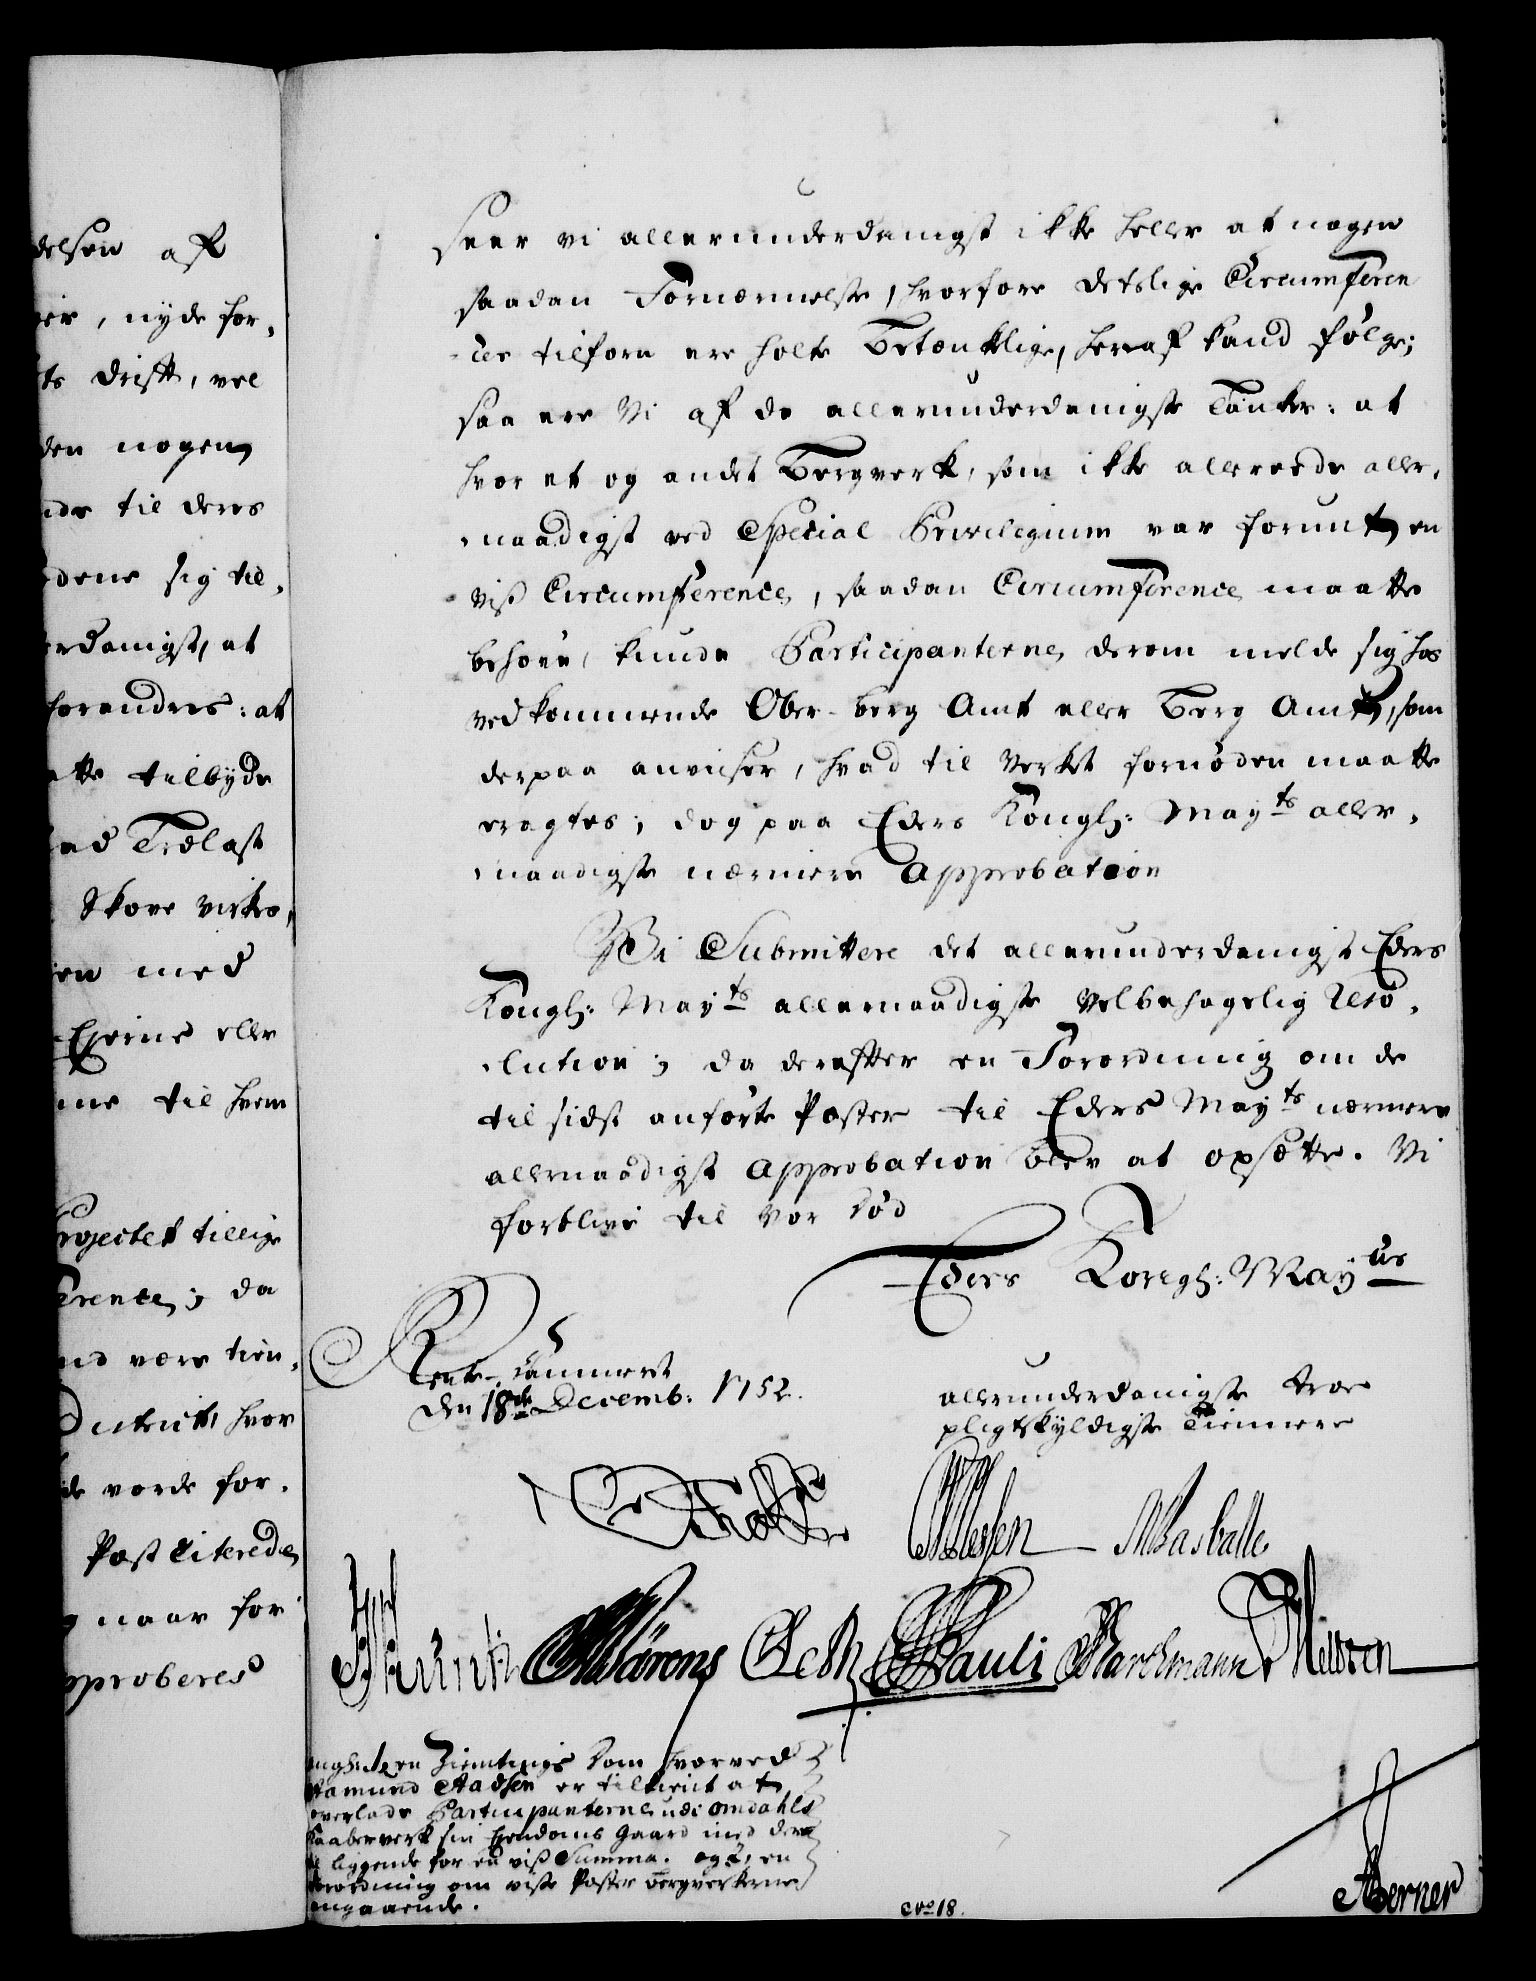 delsen af
eir, nyde for,
ts drift, vel
den nogen
nde til deres
dene sig til,
erdanigst, at
forandres: at
atte tilbyde
and Trælast
Skove virke,
en med
Eierne eller
me til hvem
rojectet tillige
ference; da
nd være tien,
District, hvor
de vorde for,
Post Citerede
naar for
pproberes
seer vi allerunderdanigst ikke heller at nogen
saadan Fornærmelse, hvorfore detslige Circumferen
-cer tilforn ere holte Betænklige, heraf kand følge;
saa ere Vi af de allerunderdanigste Tanker: at
hvor et og andet Bergverk, som ikke allereede aller,
,naadigst ved Special Privilegium var forunt en
viss Circumference, saadan Circumference maatte
behøve, kunde Participanterne derom melde sig hos
vedkommende Ober-berg Amt eller Berg Amt, som
derpaa anviiser, hvad til Verket fornøden maatte
eragtes; dog paa Eders Kongl: Mayts aller,
,naadigste nærmere Approbation
Vi Submittere det allerunderdanigst Eders
Kongl: Mayts allernaadigste Velbehagelig Reso,
,lution; da derefter en Forordning om de
til sidst anførte Poster til Eders Mayts nærmere
allernaadigst Approbation blev at opsætte. Vi
forblive til vor Død
Eders Kongl: Mayts
Rente-Cammeret
den 18de Decemb: 1752.
allerunderdanigste troe
pligtskyldigste Tiennere
Holst
MBasballe
Pauli Barchmann
angl. een Hiemtings Dom hvorved
Aamund Aadsen er tilkient at
overlade Participanterne udi Omdahls
Kaaberverk sin Eiendoms Gaard med dere
liggende for en viss Summa. og 2, en
Forordning om visse Poster Bergverkerne
angaaende.
No 18.
Berner